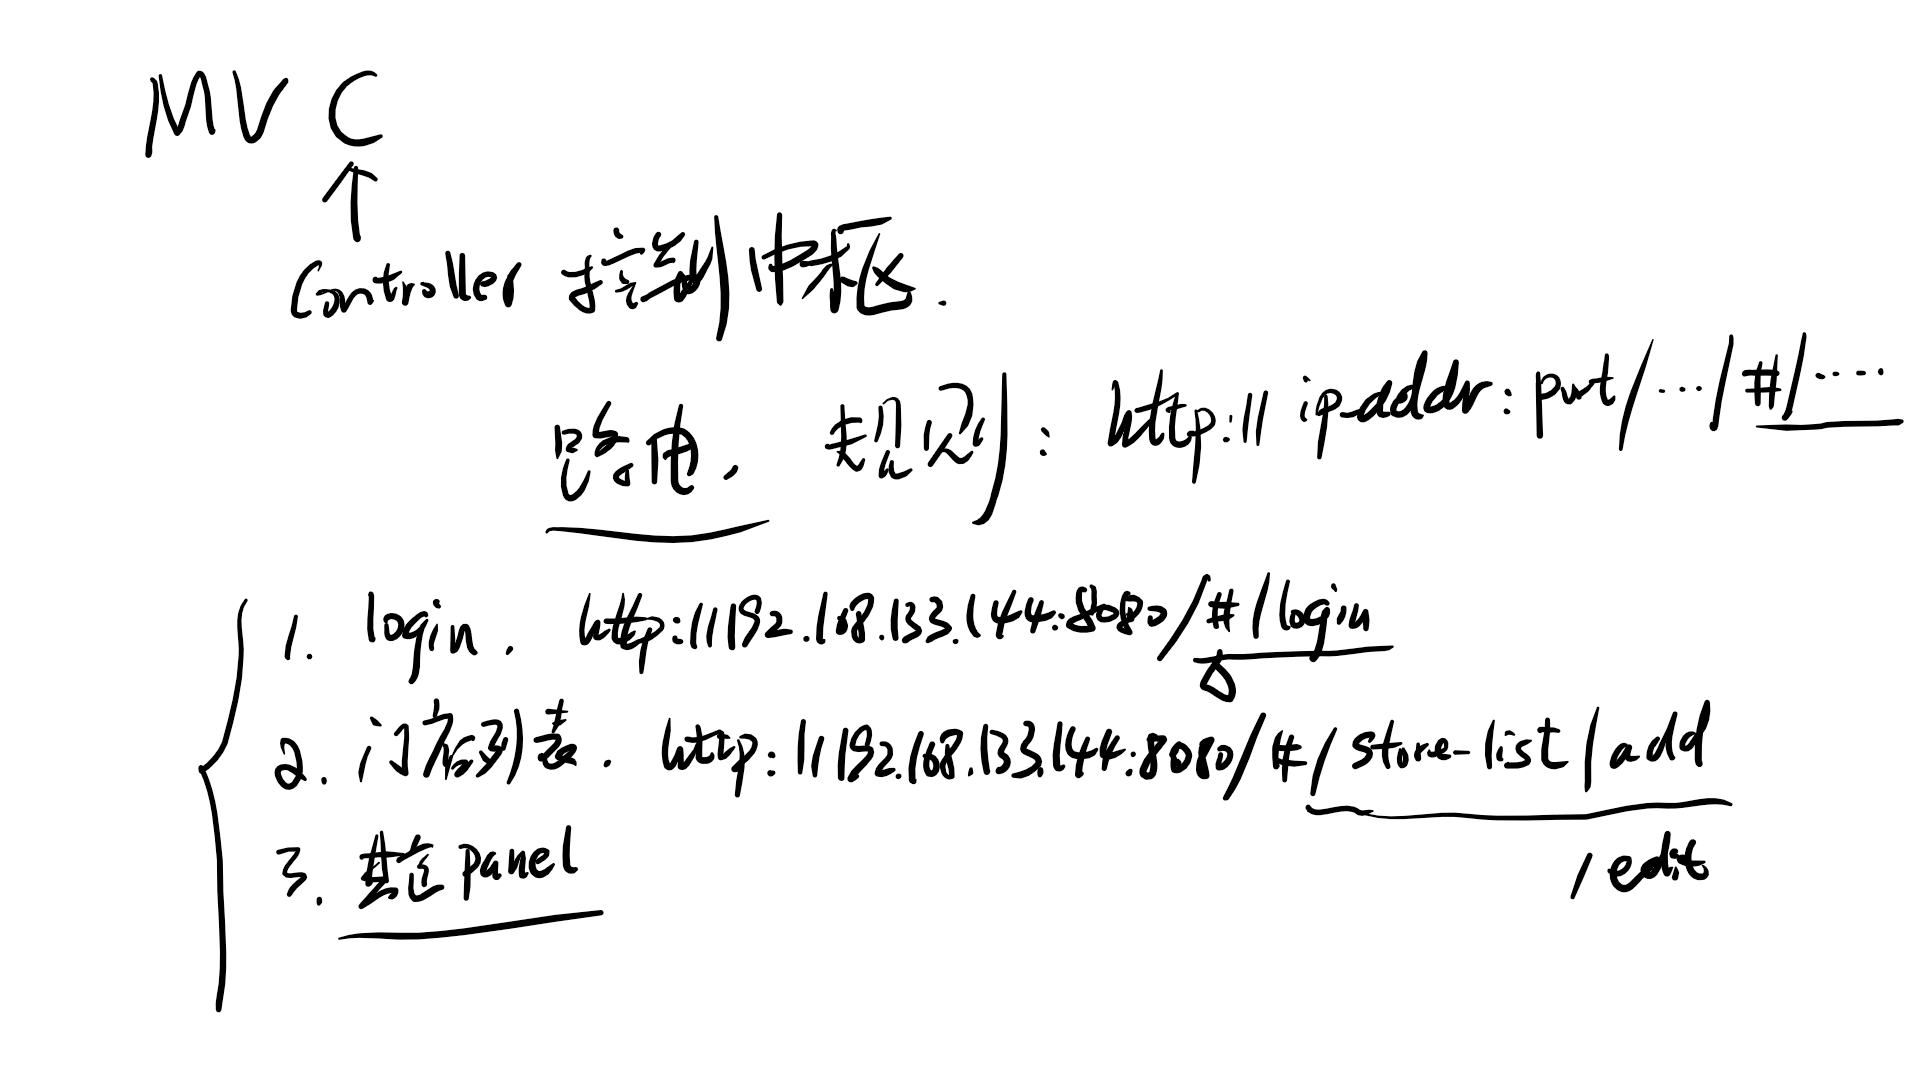 MVC
↑
Controller 控制中枢.
路由, 规则: http://ip-addr:port/.../#/.....
1. login. http://192.168.133.144:8080/#/login
2. 门店列表. http://192.168.133.144:8080/#/store-list/add
/edit
3. 基盘 panel